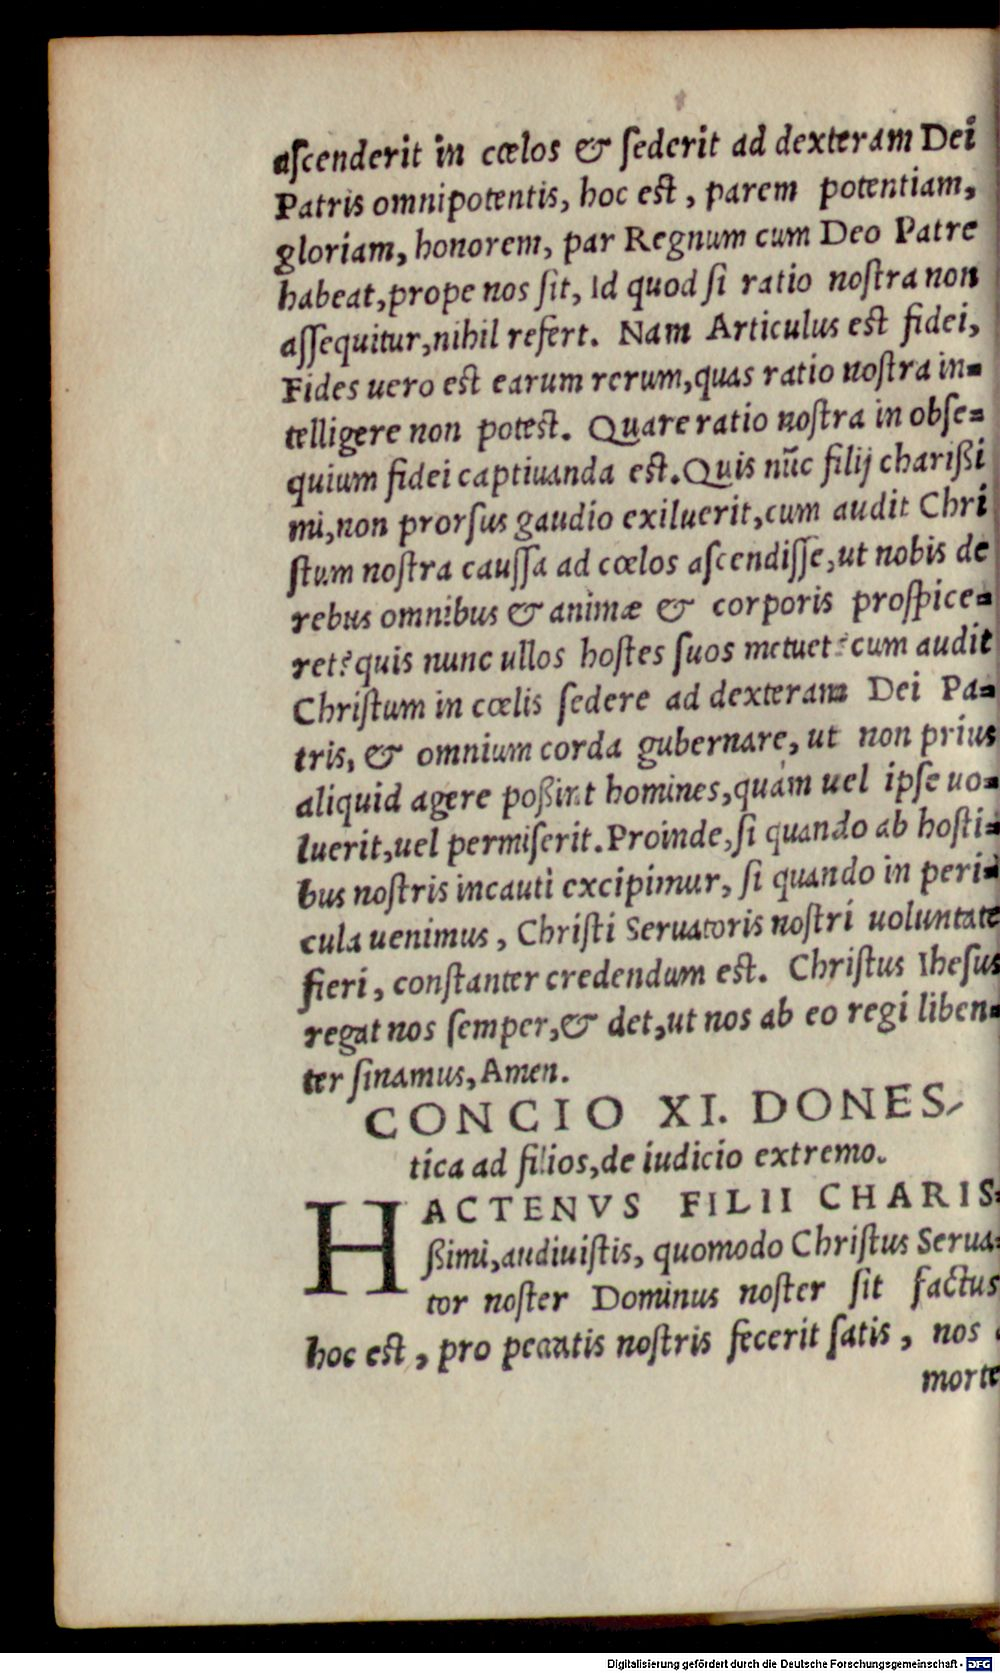 aſcenderit in cœlos & ſederit ad dexteram Dei
Patris omnipotentis, hoc est, parem potentiam,
gloriam, honorem, par Regnum cum Deo Patre
habeat, prope nos ſit, Id quod ſi ratio noſtra non
aſſequitur, nihil refert. Nam Articulus est fidei,
Fides uero est earum rerum, quas ratio noſtra in-
telligere non potest. Quare ratio noſtra in obſe-
quium fidei captiuanda est. Quis nūc filij charißi
mi, non prorſus gaudio exiluerit, cum audit Chri
ſtum noſtra cauſſa ad cœlos aſcendiſſe, ut nobis de
rebus omnibus & animæ & corporis proſpice-
ret? quis nunc ullos hoſtes ſuos metuet? cum audit
Chriſtum in cœlis ſedere ad dexteram Dei Pa-
tris, & omnium corda gubernare, ut non prius
aliquid agere poßint homines, quàm uel ipſe uo-
luerit, uel permiſerit. Proinde, ſi quando ab hoſti-
bus noſtris incauti excipimur, ſi quando in peri-
cula uenimus, Chriſti Seruatoris noſtri uoluntate
fieri, conſtanter credendum est. Chriſtus Iheſus
regat nos ſemper, & det, ut nos ab eo regi liben-
ter ſinamus, Amen.
CONCIO XI. DONES-
tica ad filios, de iudicio extremo.
HACTENVS FILII CHARIS-
ßimi, audiuiſtis, quomodo Chriſtus Serua-
tor noſter Dominus noſter ſit factus
hoc est, pro peccatis noſtris fecerit ſatis, nos
morte
Digitalisierung gefördert durch die Deutsche Forschungsgemeinschaft - DFG